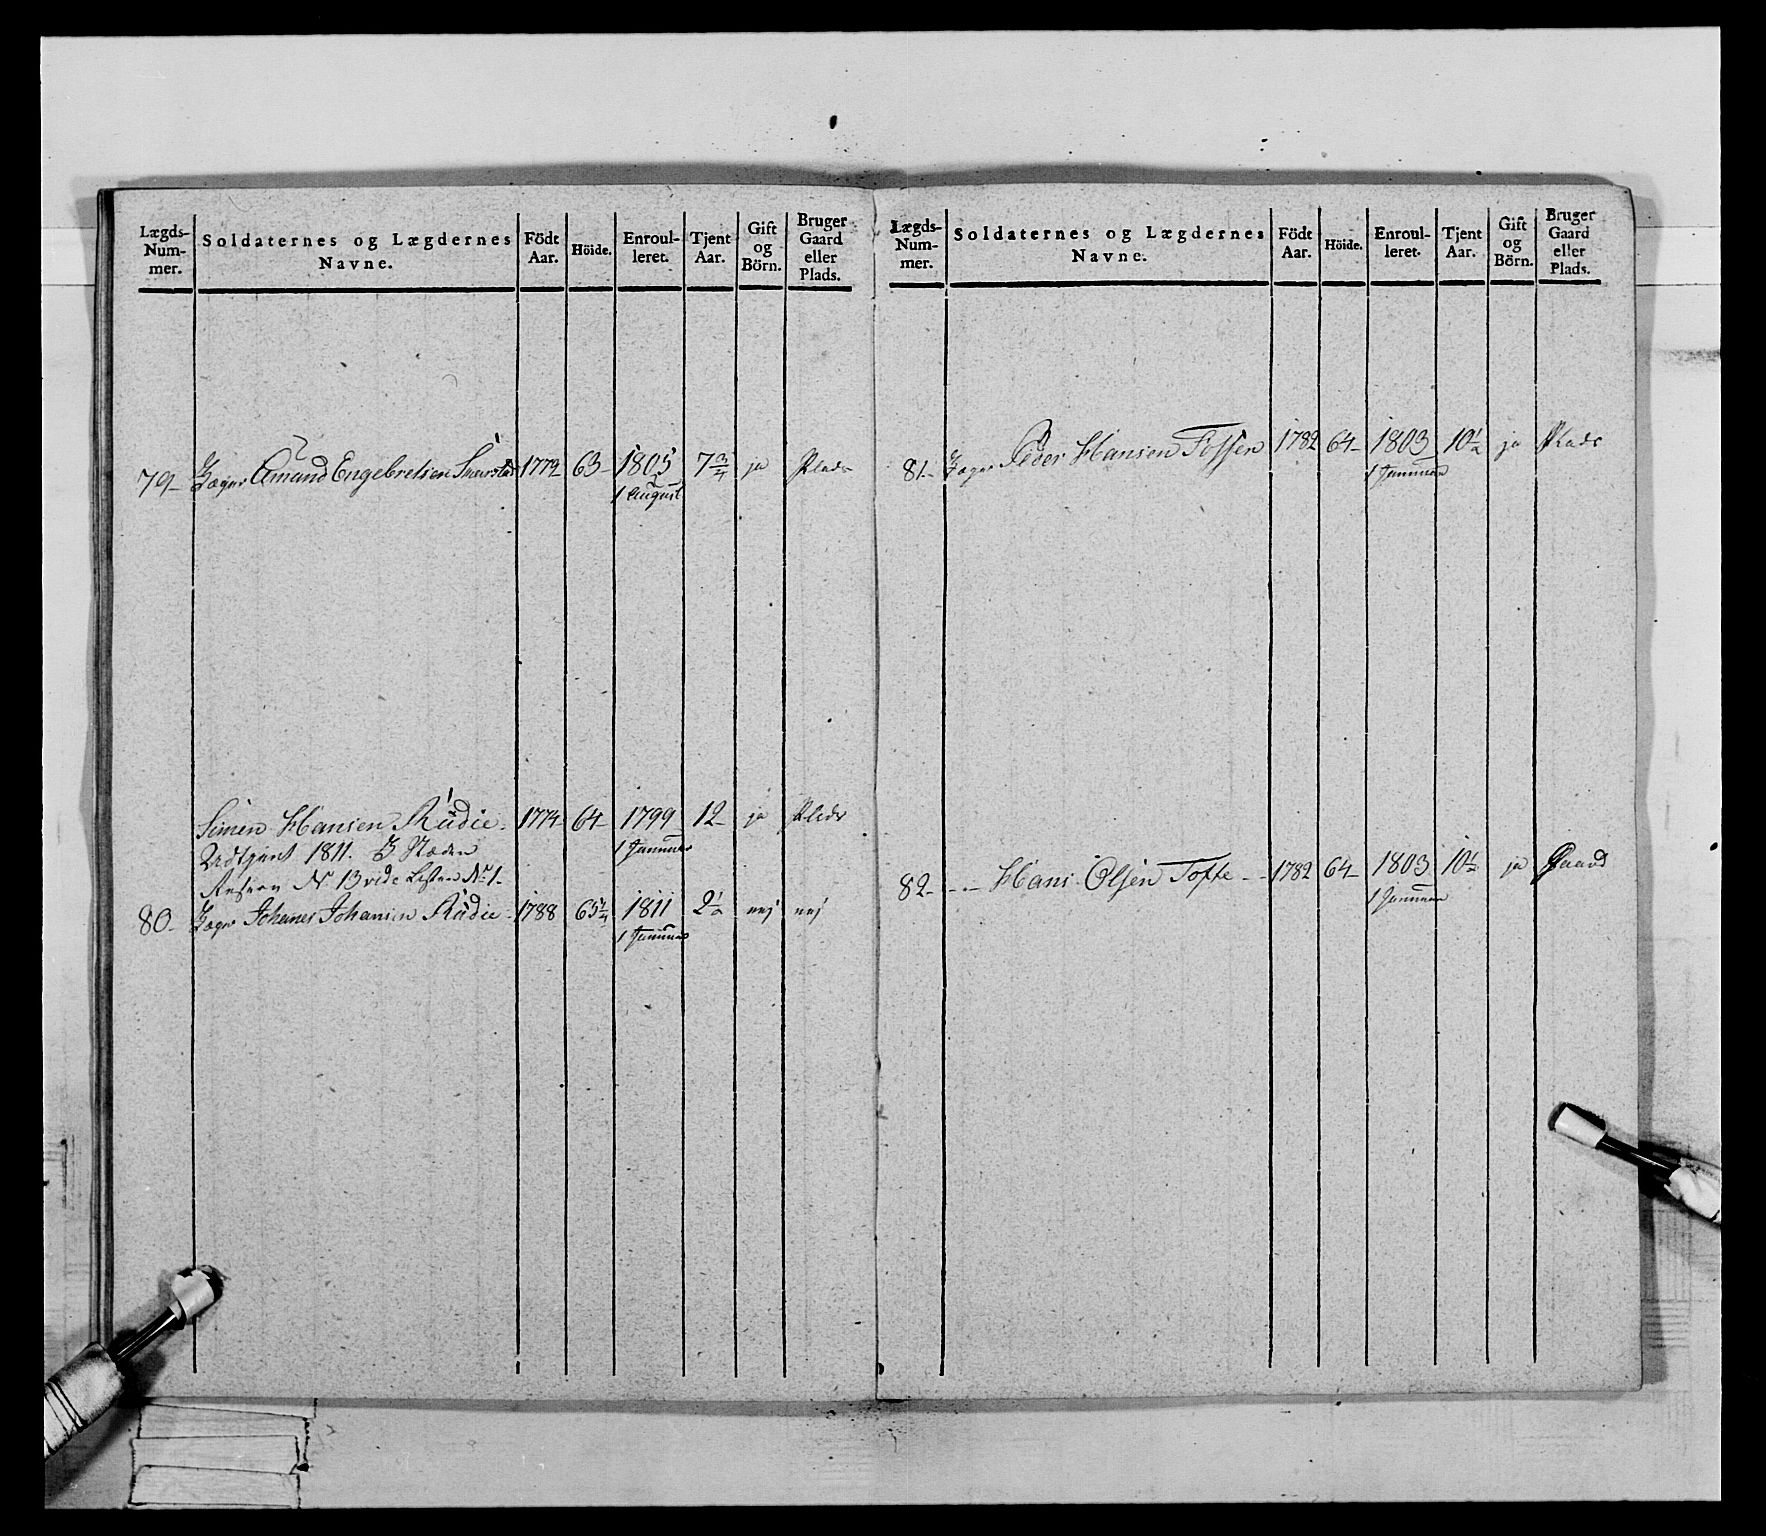 Lægds-Num-mer. Soldaternes og Lægdernes Navne. Födt Aar. Höide. Enroul-leret. Tjent Aar. Gift og Börn. Bruger Gaard eller Plads.
79- Jæger Amund Engebretsen 1779 63- 1805 7 3/4 ja Plads
1 August
Simen Hansen Rüdie- 1774 64- 1799 12- ja Plads
1 Januar
Udtjent 1811. I Stæden
Reserv No 13 vide Listen No 1-
80- Jæger Johanes Johansen Rüdie- 1788 65 1811 2 1/2 nej nej
1 Januar
Lægds-Num-mer. Soldaternes og Lægdernes Navne. Födt Aar. Höide. Enroul-leret. Tjent Aar. Gift og Börn. Bruger Gaard eller Plads.
81- Jæger Peder Hansen Fossen 1782 64- 1803 10 1/2 ja Plads
1 Januar
82- - - - Hans Olsen Tofte - - 1782 64- 1803 10 1/2 ja Gaard
1 Januar